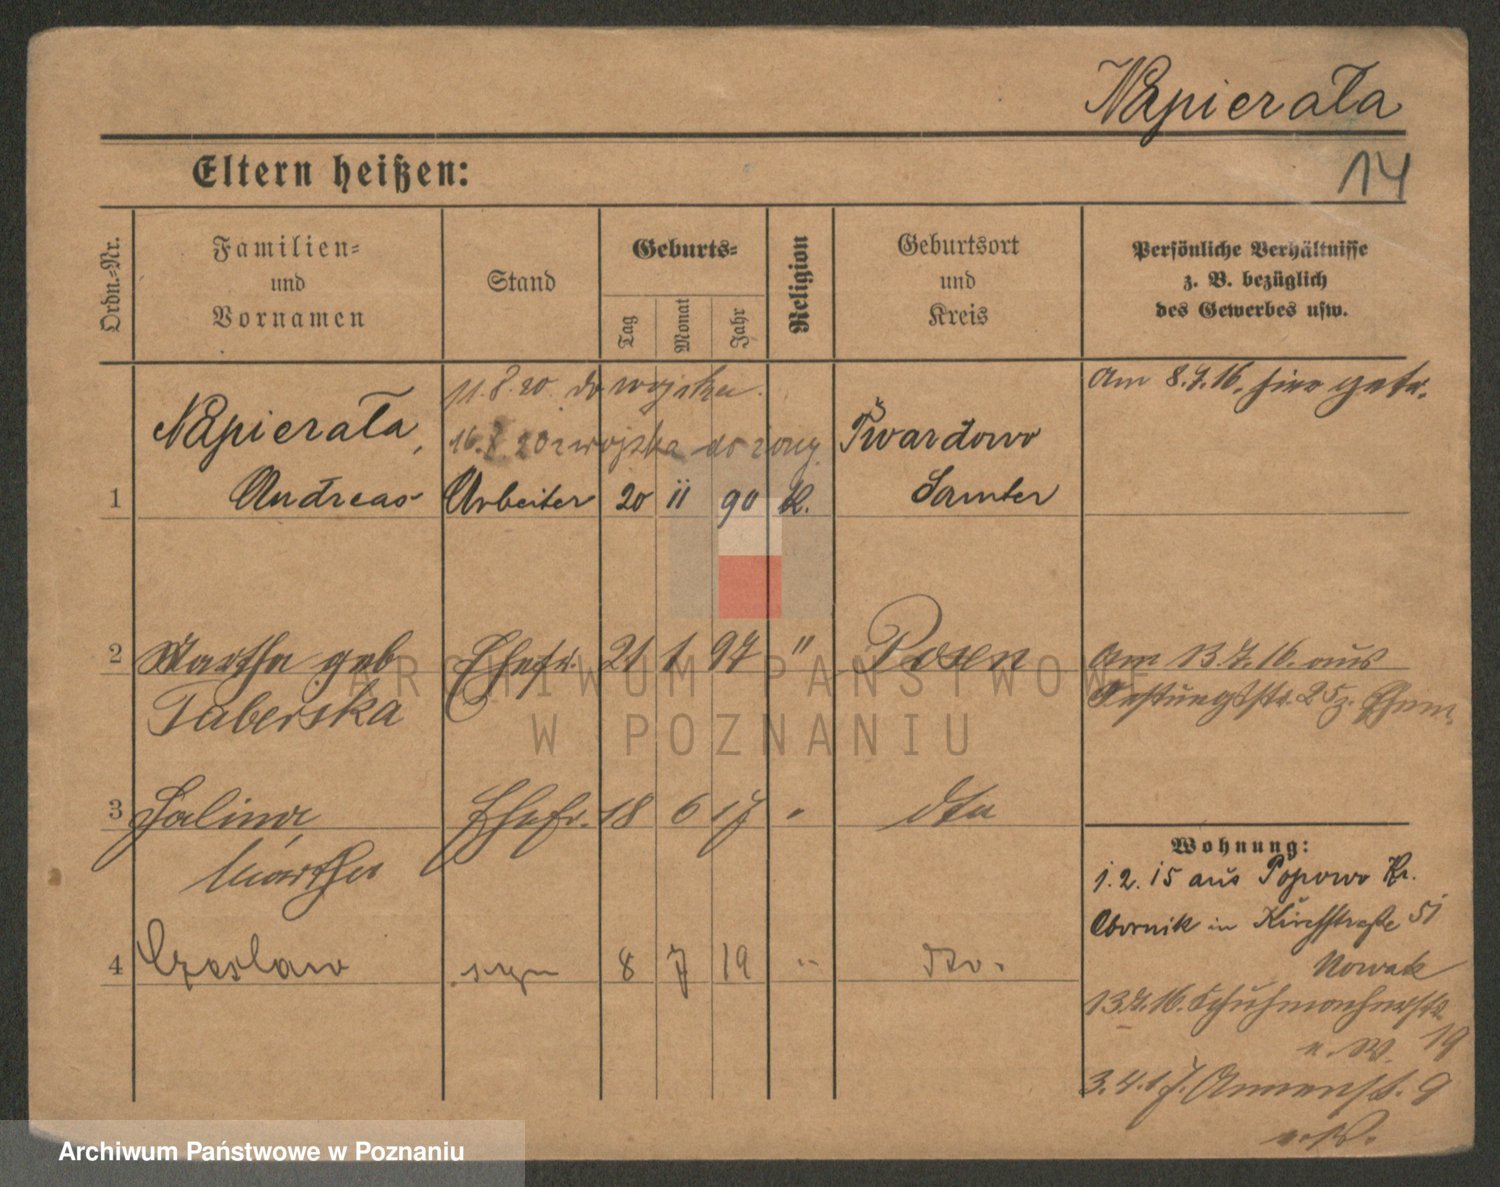 Napierała
14
Eltern heißen:
Ordn.-Nr.
Familien-
und
Vornamen
Stand
Geburts-
Tag
Monat
Jahr
Religion
Geburtsort
und
Kreis
Persönliche Verhältnisse
z. B. bezüglich
des Gewerbes usw.
11.8.20 do wojska.
Am 8.7.16. hier getr.
Napierała,
16.8.20 z wojska do żony
Twardowo
1 Andreas Arbeiter 20 11 90 K. Samter
2 Martha geb Ehefr. 21 1 97 " Posen Am 13.7.16. aus
Taberska
Festungsstr. 25
3 Halina 18 6 17 " dto
Martha
Wohnung:
1.2.15 aus Popowo Kr.
Obornik in Kirchstraße 51
4 Czesław syn 8 7 19 " dto.
Nowak
13.7.16. Schuhmacherstr.
19
3.4.17. Annenst. 9
ARCHIWUM PAŃSTWOWE
W POZNANIU
Archiwum Państwowe w Poznaniu